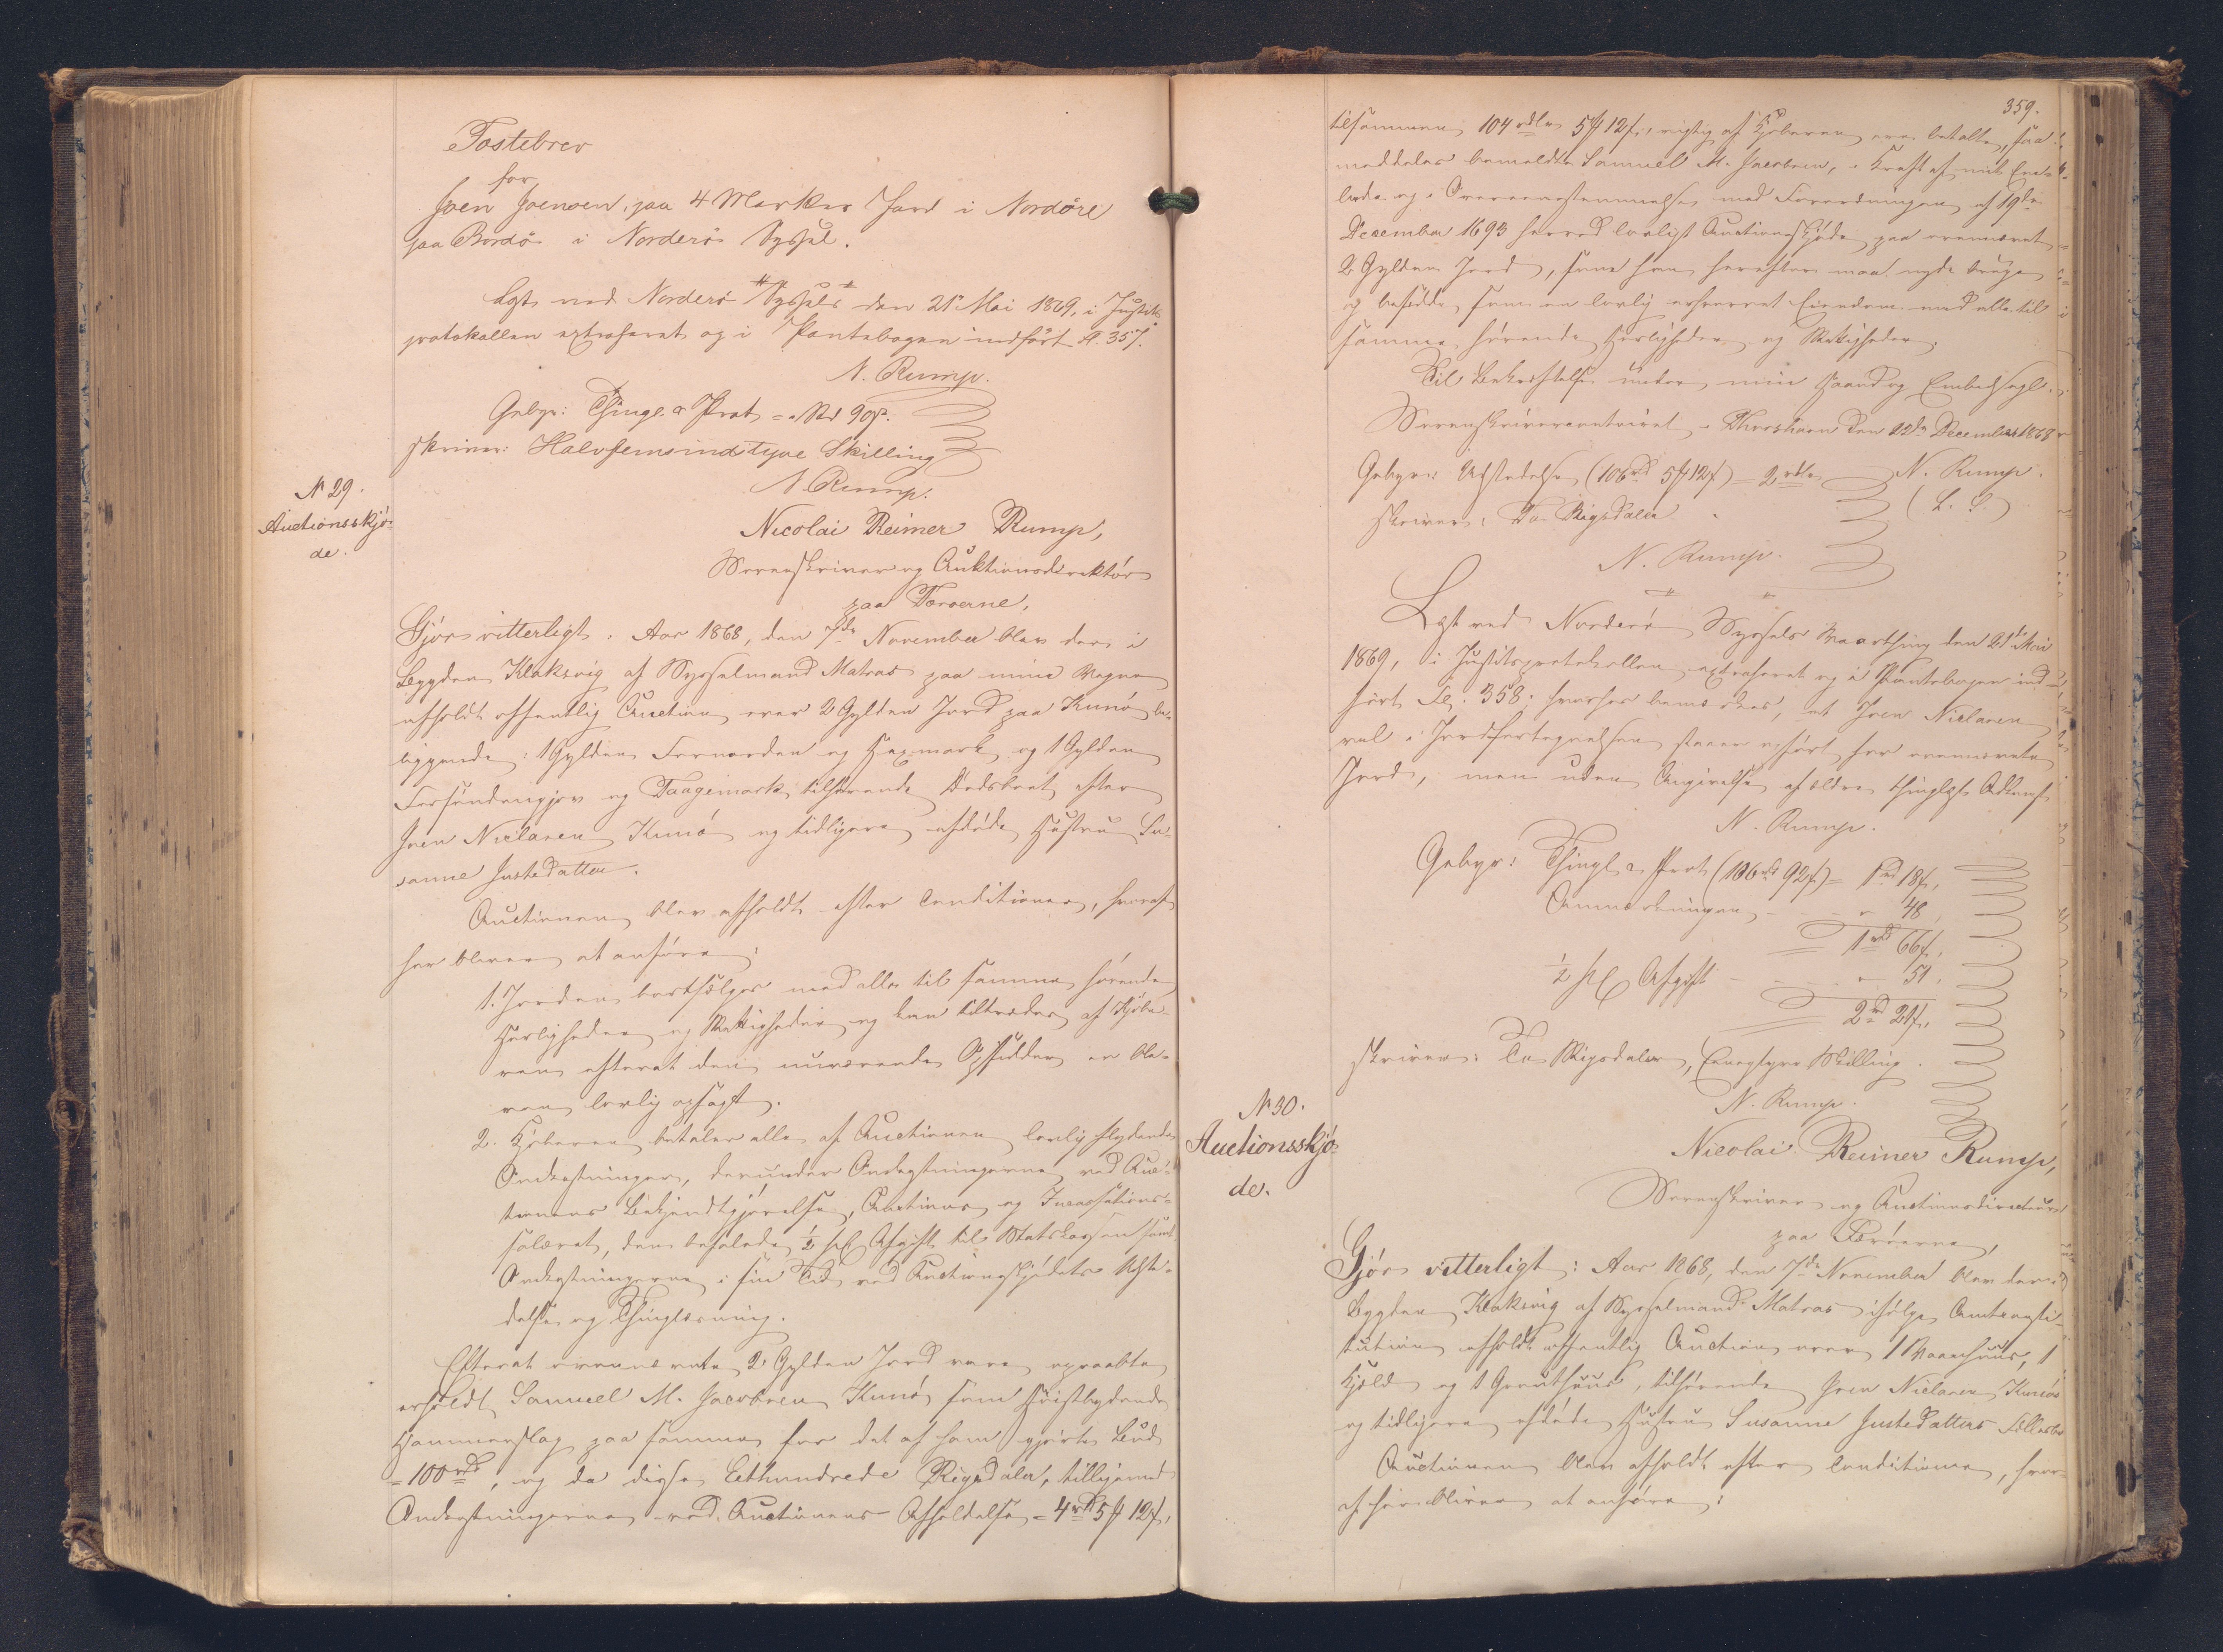 Fæstebrev
for
Joen Joensen, paa 4 Marker Jord i Nordöre
paa Bordö i Norderö Syssel.
Læst ved Norderö Syssels den 21de Mai 1869, i Justits-
protokollen extraheret og i Pantebogen indført Fol. 357.
N. Rump.
Gebyr: Thingl. & Prot. = " Rd 90 s.
skriver: Halvfemsindstyve Skilling
N. Rump.
N 29.
Auctionsskjö-
de.
Nicolai Reimer Rump,
Sorenskriver og Auktionsdirektör
paa Færøerne,
Gjör vitterligt: Aar 1868, den 7de November blev der i
Bygden Klaksvig af Sysselmand Matras paa mine Vegne
afholdt offentlig Auction over 2 Gylden Jord paa Kunö, be-
liggende: 1 Gylden Fornorden og Haxmark og 1 Gylden
Forsøndengjov og Taagemark, tilhørende Dødsboet efter
Joen Nielsen Kunö og tidligere afdöde Hustru Su-
sanne Justedatter.
Auctionen blev afholdt efter Conditioner, hvoraf
her bliver at anföre:
1. Jorden bortsælges med alle til samme hörende
Herligheder og Rettigheder og kan tiltrædes af Kjöbe-
ren efterat den nuværende Opsidder er ble-
ven lovlig opsagt.
2. Kjöberen betaler alle af Auctionen lovlig flydende
Omkostninger, derunder Omkostningerne ved Auc-
tionens Bekjendtgjörelse, Auctions og Incassations-
salæret, den befalede ½ pCt Afgift til Statskassen samt
Omkostningerne i sin Tid ved Auctionsskjödets Udste-
delse og Thinglæsning.
Efterat ovennævnte 2 Gylden Jord vare opraabte
erholdt Samuel M. Jacobsen Kunö som Höistbydende
Hammerslag paa samme for det af ham gjorte Bud
= 100 rd, og da disse Eethundrede Rigsdaler, tilligemed
Omkostningerne ved Auctionens Afholdelse = 4 rd 5 # 12 s,
359.
tilsammen 104 rdlr 5 # 12 s, rigtig af Kjöberen ere betalte, saa
meddeles bemeldte Samuel M. Jacobsen, i Kraft af mit Em-
bede og i Overeensstemmelse med Forordningen af 19de
December 1693 herved lovligt Auctionsskjöde paa ovennævnte
2 Gylden Jord, som han herefter maa nyde bruge
og besidde som en lovlig erhvervet Eiendom med alle til
samme hörende Herligheder og Rettigheder.
Til Bekræftelse under min Haand og Embedssegl.
Sorenskrivercontoiret i Thorshavn den 12te December 1868
N. Rump.
(L. S.)
Gebyr: Udstedelse (106 rd 5 # 12 s) = 2 rdlr
skriver: To Rigsdaler
N. Rump.
Læst ved Norderö Syssels Vaarthing den 21de Mai
1869, i Justitsprotokollen extraheret og i Pantebogen ind-
fört Fol. 358; hvorhos bemærkes, at Joen Nielsen
vel i Jordfortegnelsen staaer opfört for ovennævnte
Jord, men uden Angivelse af ældre thinglæst Adkomst.
N. Rump.
Gebyr: Thingl. & Prot. (106 rd 92 s) = 1 rd 18 s,
Anmærkningen - - - " 48,
1 rd 66 s,
½ pCt Afgift - - - " 51,
2 rd 21 s,
skriver: To Rigsdaler, Eenogtyve Skilling.
N. Rump.
N 30.
Auctionsskjö-
de.
Nicolai Reimer Rump,
Sorenskriver og Auctionsdirecteur
paa Færöerne,
Gjör vitterligt: Aar 1868, den 7de November blev der i
Bygden Klaksvig af Sysselmand Matras ifølge
afholdt offentlig Auction over 1 1
Hjeld og 1 Grauthuus, tilhörende Joen Nielsen Kunös
og tidligere afdöde Hustru Susanne Justedatters Fællesbo
Auctionen blev afholdt efter Conditioner, hvor-
af her bliver at anföre: